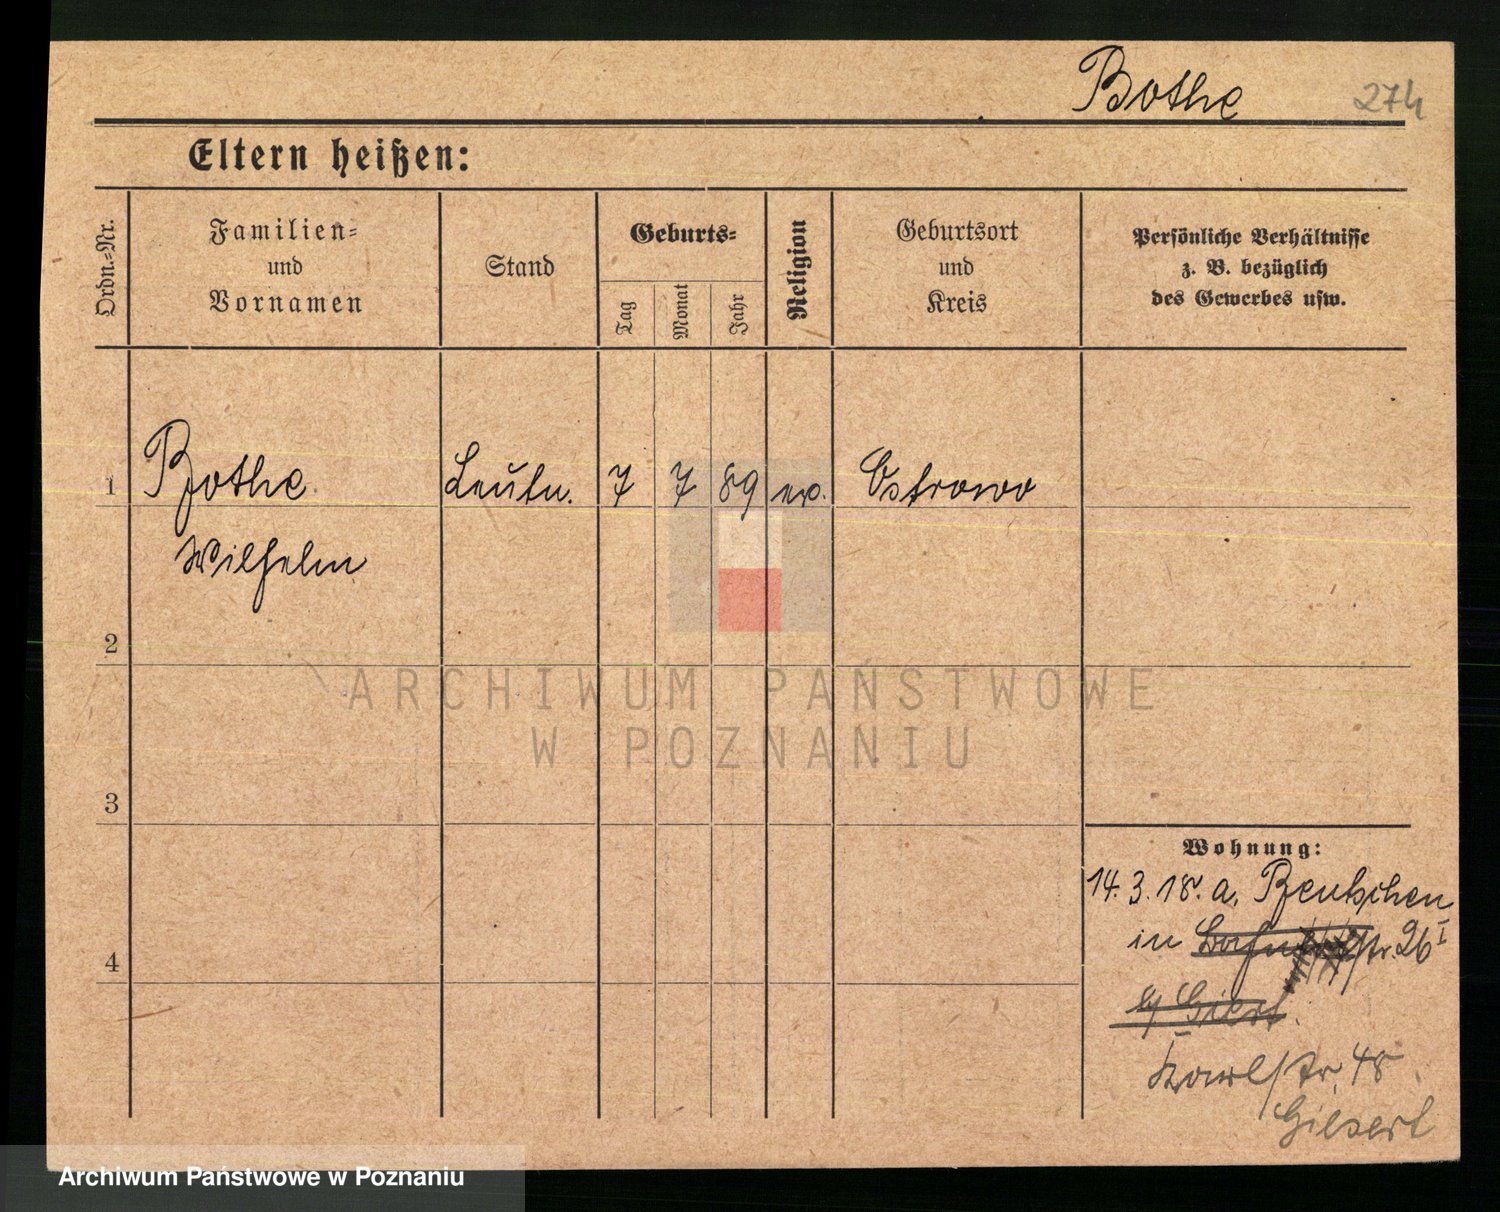 Bothe 274
Eltern heißen:
Ordn.-Nr.
Familien-
und
Vornamen
Stand
Geburts-
Tag
Monat
Jahr
Religion
Geburtsort
und
Kreis
Persönliche Verhältnisse
z. B. bezüglich
des Gewerbes usw.
1 Bothe Leutn. 7 7 89 ev. Ostrowo
Wilhelm
2
ARCHIWUM PAŃSTWOWE
W POZNANIU
3
Wohnung:
14. 3. 18. a. Bentschen
in str. 26 I
4
b/ Giert.
Karlstr. 48
Giesert
Archiwum Państwowe w Poznaniu